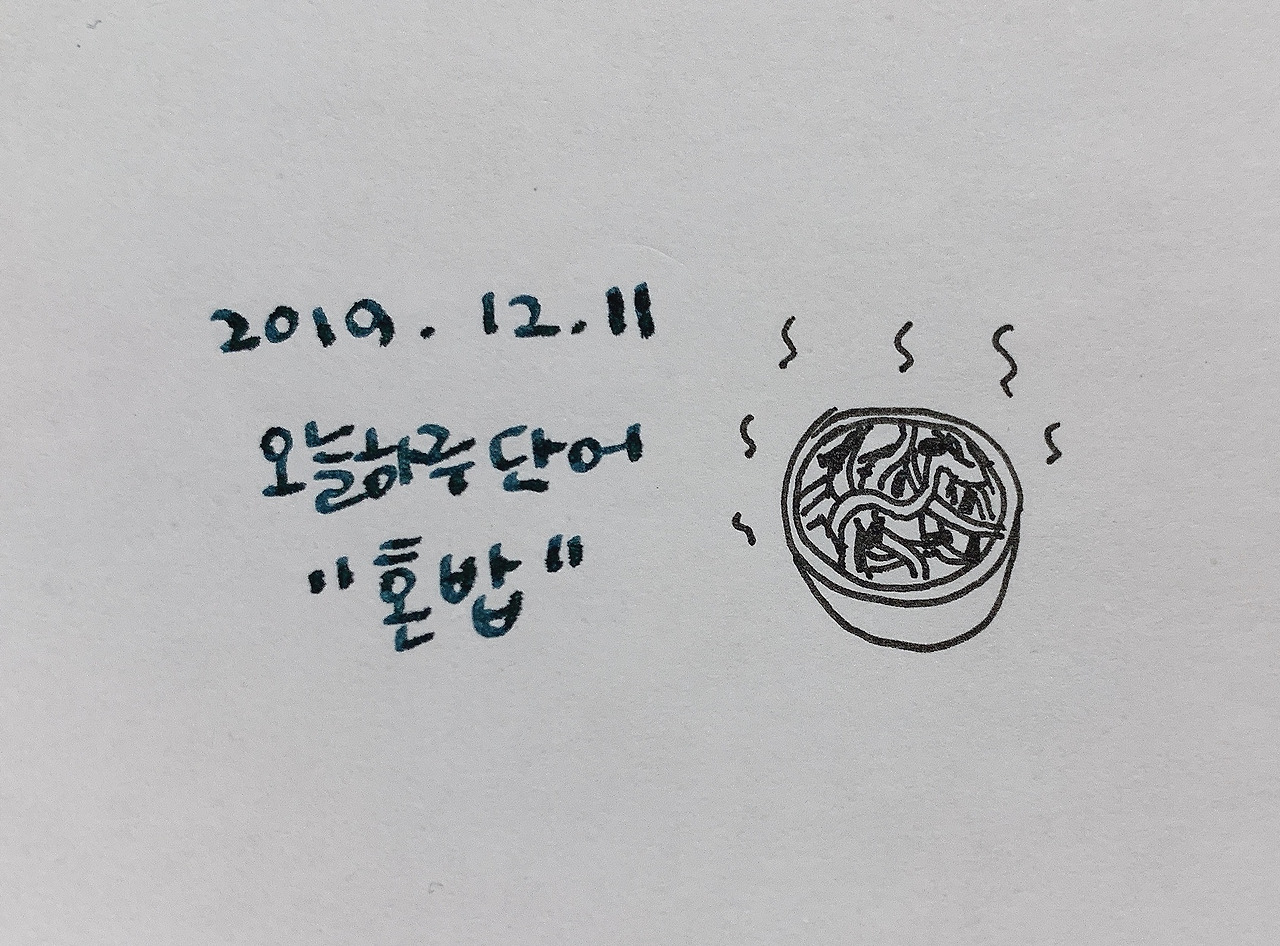 2019. 12. 11
오늘하루 단어
"혼밥"